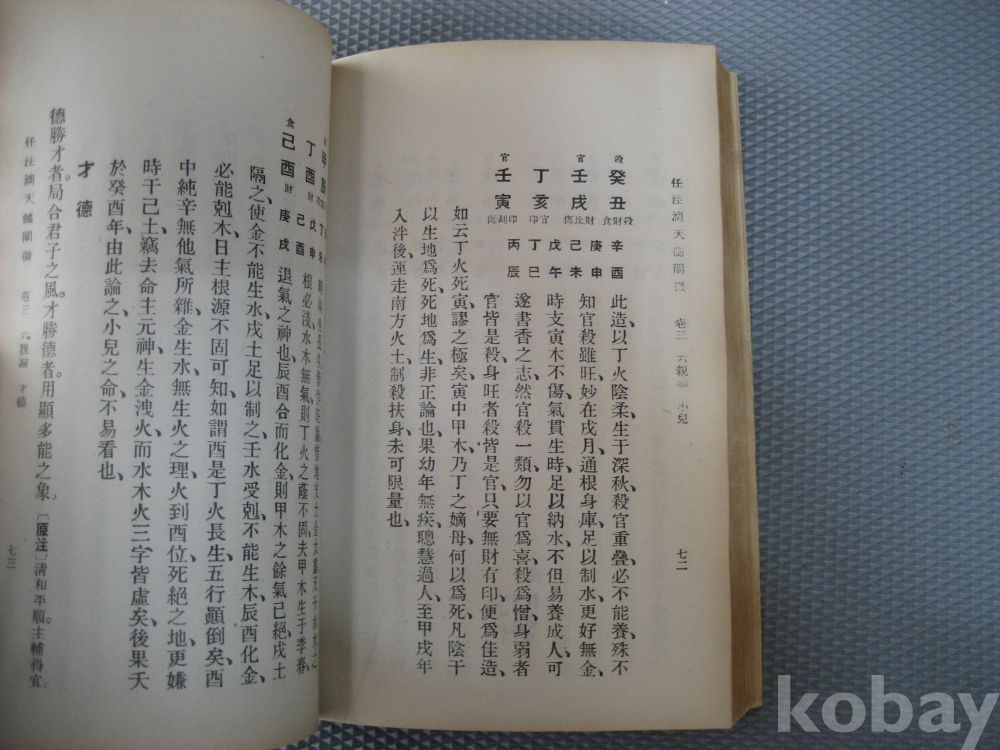 任注滴天髓闡微　卷三　六親論　小兒
七二
殺　癸丑　殺財食
官　壬戌　傷比財
丁亥　印官
官　壬寅　傷刼印
辛酉
庚申
己未
戊午
丁巳
丙辰
此造以丁火陰柔、生于深秋、殺官重疊、必不能養、殊不
知官殺雖旺、妙在戌月、通根身庫、足以制水、更好無金、
時支寅木不傷、氣貫生時、足以納水、不但易養成人、可
遂書香之志、然官殺一類、勿以官爲喜、殺爲憎、身弱者
官皆是殺、身旺者殺皆是官、只要無財有印、便爲佳造、
如云丁火死寅、謬之極矣、寅中甲木、乃丁之嫡母、何以爲死、凡陰干
以生地爲死、死地爲生、非正論也、果幼年無疾、聰慧過人、至甲戌年
入泮、後運走南方火土、制殺扶身、未可限量也、
丁酉　財
食　己酉　財
戊申
己酉
庚戌
根必淺、水木無氣、則丁火之蔭不固、夫甲木生于季春、
退氣之神也、辰酉合而化金、則甲木之餘氣已絕、戌土
隔之、使金不能生水、戌土足以制之、壬水受剋、不能生木、辰酉化金、
必能剋木、日主根源不固可知、如謂酉是丁火長生、五行顚倒矣、酉
中純辛、無他氣所雜、金生水、無生火之理、火到酉位、死絕之地、更嫌
時干己土、竊去命主元神、生金洩火、而水木火三字皆虛矣、後果夭
於癸酉年、由此論之、小兒之命、不易看也、
才　德
德勝才者。局合君子之風。才勝德者。用顯多能之象。〔原注〕清和平順。主輔得宜。
任注滴天髓闡微　卷三　六親論　才德
七三
kobay